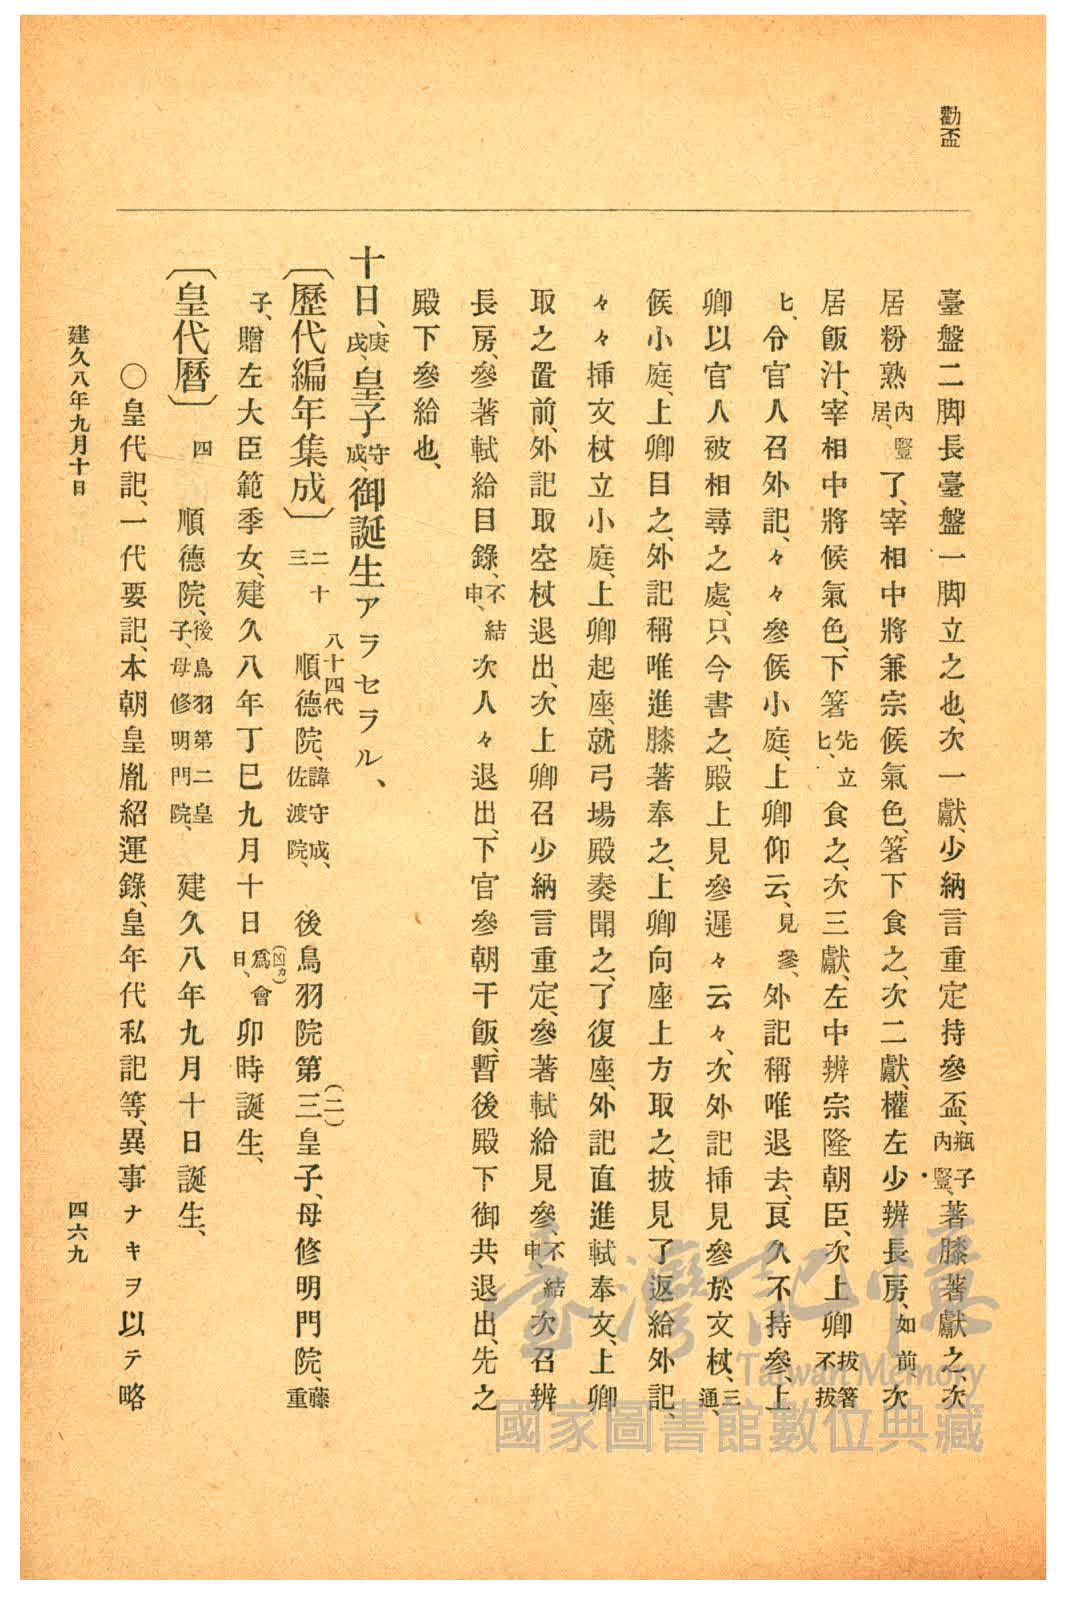 勸盃
臺盤二脚長臺盤一脚立之也、次一獻、少納言重定持參盃、瓶子內豎、著膝著獻之、次
居粉熟內豎居、了、宰相中將兼宗候氣色、箸下食之、次二獻、權左少辨長房、如前、次
居飯汁、宰相中將候氣色、下箸先立匕、食之、次三獻、左中辨宗隆朝臣、次上卿拔箸不拔
匕、令官人召外記、々々參候小庭、上卿仰云、見參、外記稱唯退去、良久不持參、上
卿以官人被相尋之處、只今書之、殿上見參遲々云々、次外記挿見參於文杖、三通、
候小庭、上卿目之、外記稱唯進膝著奉之、上卿向座上方取之、披見了返給外記、
々々挿文杖立小庭、上卿起座、就弓場殿奏聞之、了復座、外記直進軾奉文、上卿
取之置前、外記取空杖退出、次上卿召少納言重定、參著軾給見參、不結申、次召辨
長房、參著軾給目錄、不結申、次人々退出、下官參朝干飯、暫後殿下御共退出、先之
殿下參給也、
十日、庚戌、皇子守成、御誕生アラセラル、
〔歷代編年集成〕二十三 八十四代順德院、諱守成、佐渡院、後鳥羽院第三(二)皇子、母修明門院、藤重
子、贈左大臣範季女、建久八年丁巳九月十日爲會(凶カ)日、卯時誕生、
〔皇代曆〕四 順德院、後鳥羽第二皇子、母修明門院、建久八年九月十日誕生、
〇皇代記、一代要記、本朝皇胤紹運錄、皇年代私記等、異事ナキヲ以テ略
建久八年九月十日
四六九
臺灣記憶
Taiwan Memory
國家圖書館數位典藏